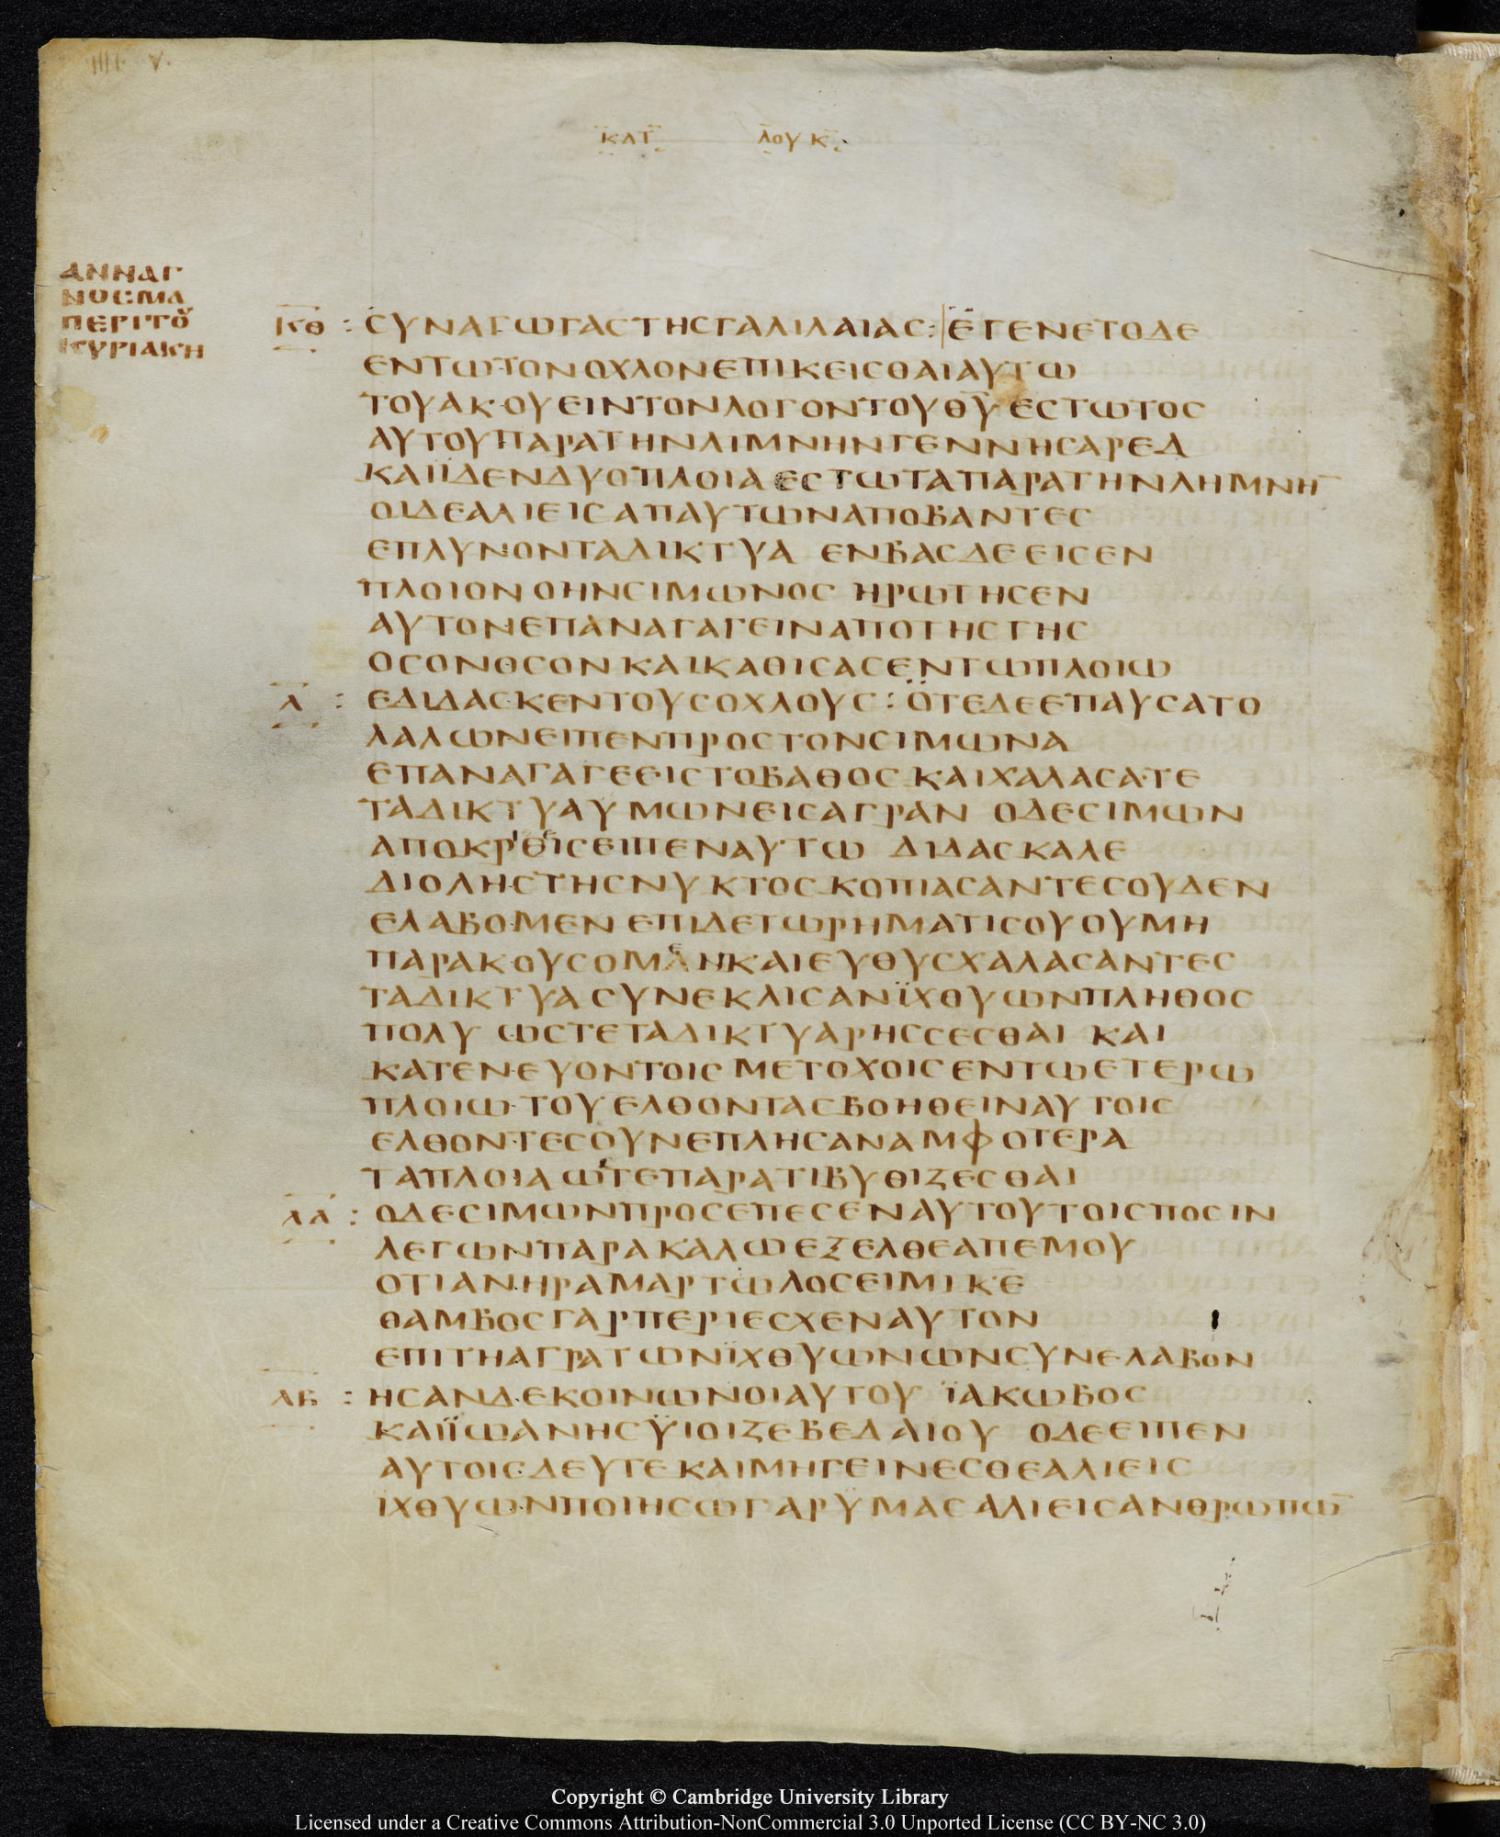 ΚΑΤ ΛΟΥΚ
ΑΝΝΑΓ
ΝΟΣΜΑ
ΠΕΡΙΤΟΥ
ΚΥΡΙΑΚΗ
ΚΘ : ϹΥΝΑΓΩΓΑϹΤΗϹΓΑΛΙΛΑΙΑϹ : ΕΓΕΝΕΤΟΔΕ
ΕΝΤΩΤΟΝΟΧΛΟΝΕΠΙΚΕΙϹΘΑΙΑΥΤΩ
ΤΟΥΑΚΟΥΕΙΝΤΟΝΛΟΓΟΝΤΟΥΘ̅Υ̅ΕϹΤΩΤΟϹ
ΑΥΤΟΥΠΑΡΑΤΗΝΛΙΜΝΗΝΓΕΝΝΗϹΑΡΕΔ
ΚΑΙΪΔΕΝΔΥΟΠΛΟΙΑΕϹΤΩΤΑΠΑΡΑΤΗΝΛΗΜΝΗ̅
ΟΙΔΕΑΛΙΕΙϹΑΠΑΥΤΩΝΑΠΟΒΑΝΤΕϹ
ΕΠΛΥΝΟΝΤΑΔΙΚΤΥΑ ΕΝΒΑϹΔΕΕΙϹΕΝ
ΠΛΟΙΟΝΟΗΝϹΙΜΩΝΟϹ ΗΡΩΤΗϹΕΝ
ΑΥΤΟΝΕΠΑΝΑΓΑΓΕΙΝΑΠΟΤΗϹΓΗϹ
ΟϹΟΝΘϹΟΝΚΑΙΚΑΘΙϹΑϹΕΝΤΩΠΛΟΙΩ
Λ : ΕΔΙΔΑϹΚΕΝΤΟΥϹΟΧΛΟΥϹ : ΟΤΕΔΕΕΠΑΥϹΑΤΟ
ΛΑΛΩΝΕΙΠΕΝΠΡΟϹΤΟΝϹΙΜΩΝΑ
ΕΠΑΝΑΓΑΓΕΕΙϹΤΟΒΑΘΟϹΚΑΙΧΑΛΑϹΑΤΕ
ΤΑΔΙΚΤΥΑΥΜΩΝΕΙϹΑΓΡΑΝ ΟΔΕϹΙΜΩΝ
ΑΠΟΚΡΙΘΕΙϹΕΙΠΕΝΑΥΤΩ ΔΙΔΑϹΚΑΛΕ
ΔΙΟΛΗϹΤΗϹΝΥΚΤΟϹΚΟΠΙΑϹΑΝΤΕϹΟΥΔΕΝ
ΕΛΑΒΟΜΕΝ ΕΠΙΔΕΤΩΡΗΜΑΤΙϹΟΥΟΥΜΗ
ΠΑΡΑΚΟΥϹΟΜΕΝΚΑΙΕΥΘΥϹΧΑΛΑϹΑΝΤΕϹ
ΤΑΔΙΚΤΥΑϹΥΝΕΚΛΙϹΑΝΪΧΘΥΩΝΠΛΗΘΟϹ
ΠΟΛΥ ΩϹΤΕΤΑΔΙΚΤΥΑΡΗϹϹΕϹΘΑΙ ΚΑΙ
ΚΑΤΕΝΕΥΟΝΤΟΙϹΜΕΤΟΧΟΙϹΕΝΤΩΕΤΕΡΩ
ΠΛΟΙΩΤΟΥΕΛΘΟΝΤΑϹΒΟΗΘΕΙΝΑΥΤΟΙϹ
ΕΛΘΟΝΤΕϹΟΥΝΕΠΛΗϹΑΝΑΜΦΟΤΕΡΑ
ΤΑΠΛΟΙΑΩϹΤΕΠΑΡΑΤΙΒΥΘΙΖΕϹΘΑΙ
ΛΑ : ΟΔΕϹΙΜΩΝΠΡΟϹΕΠΕϹΕΝΑΥΤΟΥΤΟΙϹΠΟϹΙΝ
ΛΕΓΩΝΠΑΡΑΚΑΛΩΕΞΕΛΘΕΑΠΕΜΟΥ
ΟΤΙΑΝΗΡΑΜΑΡΤΩΛΟϹΕΙΜΙΚ̅Ε̅
ΘΑΜΒΟϹΓΑΡΠΕΡΙΕϹΧΕΝΑΥΤΟΝ
ΕΠΙΤΗΑΓΡΑΤΩΝΪΧΘΥΩΝΩΝϹΥΝΕΛΑΒΟΝ
ΛΒ : ΗϹΑΝΔΕΚΟΙΝΩΝΟΙΑΥΤΟΥ ΪΑΚΩΒΟϹ
ΚΑΙΪΩΑΝΗϹΫΙΟΙΖΕΒΕΔΑΙΟΥ ΟΔΕΕΙΠΕΝ
ΑΥΤΟΙϹΔΕΥΤΕΚΑΙΜΗΓΕΙΝΕϹΘΕΑΛΙΕΙϹ
ΙΧΘΥΩΝΠΟΙΗϹΩΓΑΡΫΜΑϹΑΛΙΕΙϹΑΝΘΡΩΠΩ̅
Copyright © Cambridge University Library
Licensed under a Creative Commons Attribution-NonCommercial 3.0 Unported License (CC BY-NC 3.0)